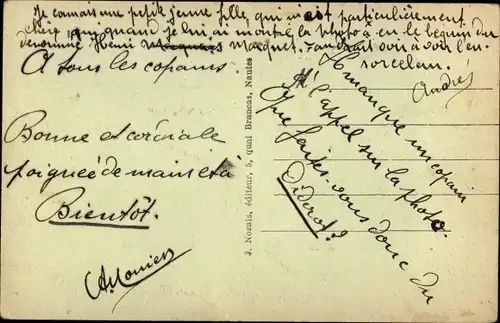 Je connais une petite jeune fille, qui m'est particulièrement
chère, qui quand je lui ai montré la photo a eu le béguin du
dénommé Henri Macquet. Faudrait voir à voir l'en-
sorceleur.
André
A tous les copains.
Bonne et cordiale
poignée de mains et à
Bientôt.
J. Nozais, éditeur, 5, quai Brancas, Nantes
Il manque un copain
à l'appel sur la photo.
Que faites-vous donc du
Diderot?